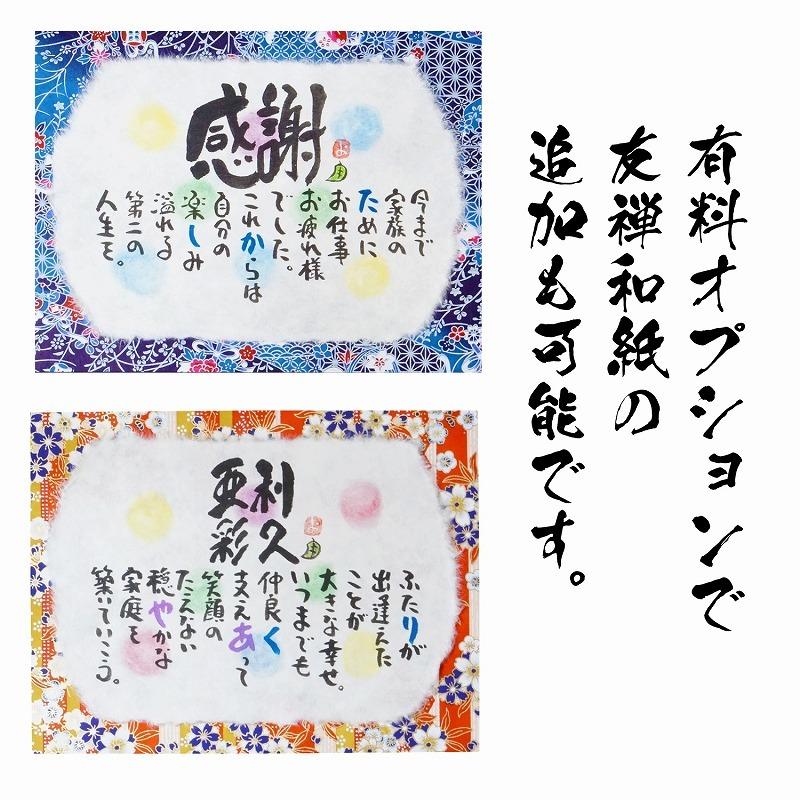 有料オプションで
友禅和紙の
追加も可能です。
感謝
今まで
家族の
ために
お仕事
お疲れ様
でした。
これからは
自分の
楽しみ
溢れる
第二の
人生を。
利久
亜彩
ふたりが
出逢えた
ことが
大きな幸せ。
いつまでも
仲良く
支えあって
笑顔の
たえない
穏やかな
家庭を
築いていこう。